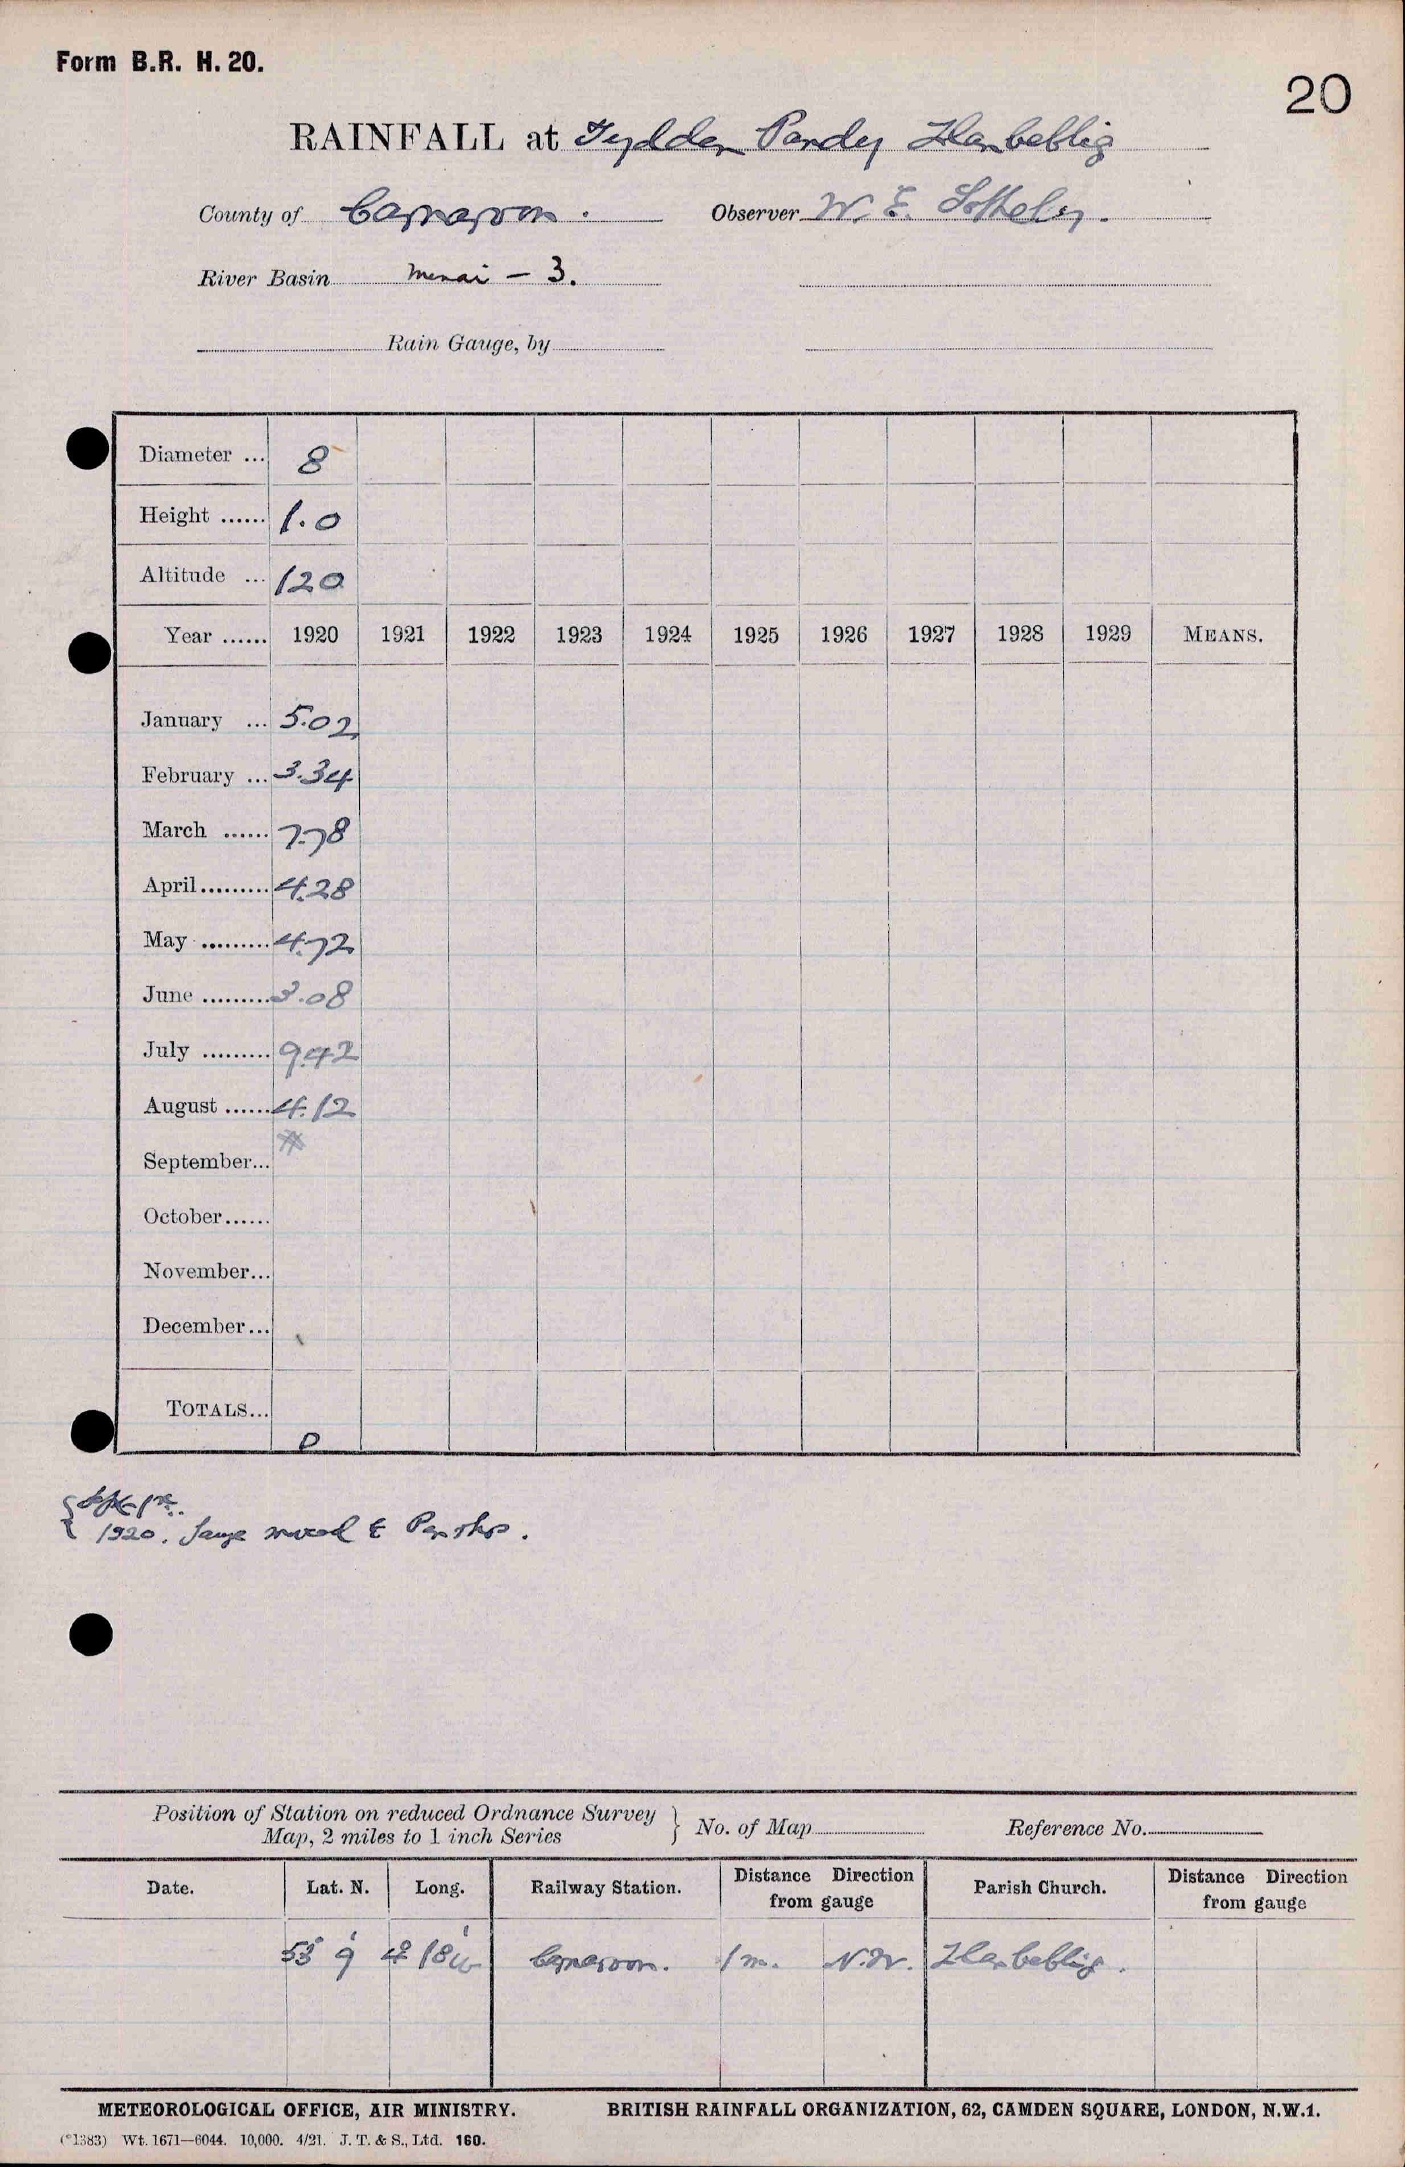 Form B.R. H. 20.
20
RAINFALL at Tydden Pandy Llanbeblig
County of Carnarvon. Observer W. E. Sotheby.
River Basin Menai - 3.
Rain Gauge, by
Diameter ... 8
Height ...... 1.0
Altitude ... 120
Year ...... 1920 1921 1922 1923 1924 1925 1926 1927 1928 1929 MEANS.
January ... 5.02
February ... 3.34
March ...... 7.78
April......... 4.28
May ......... 4.72
June ......... 3.08
July ......... 9.42
August ...... 4.12
September...
October......
November...
December...
TOTALS...
P
1920. Gauge moved to
Position of Station on reduced Ordnance Survey
Map, 2 miles to 1 inch Series } No. of Map Reference No.
Date. Lat. N. Long. Railway Station. Distance Direction from gauge Parish Church. Distance Direction from gauge
53° 9' 4° 18' W Carnarvon. 1 m. N.W. Llanbeblig.
METEOROLOGICAL OFFICE, AIR MINISTRY. BRITISH RAINFALL ORGANIZATION, 62, CAMDEN SQUARE, LONDON, N.W.1.
(*1383) Wt. 1671—6044. 10,000. 4/21. J. T. & S., Ltd. 160.